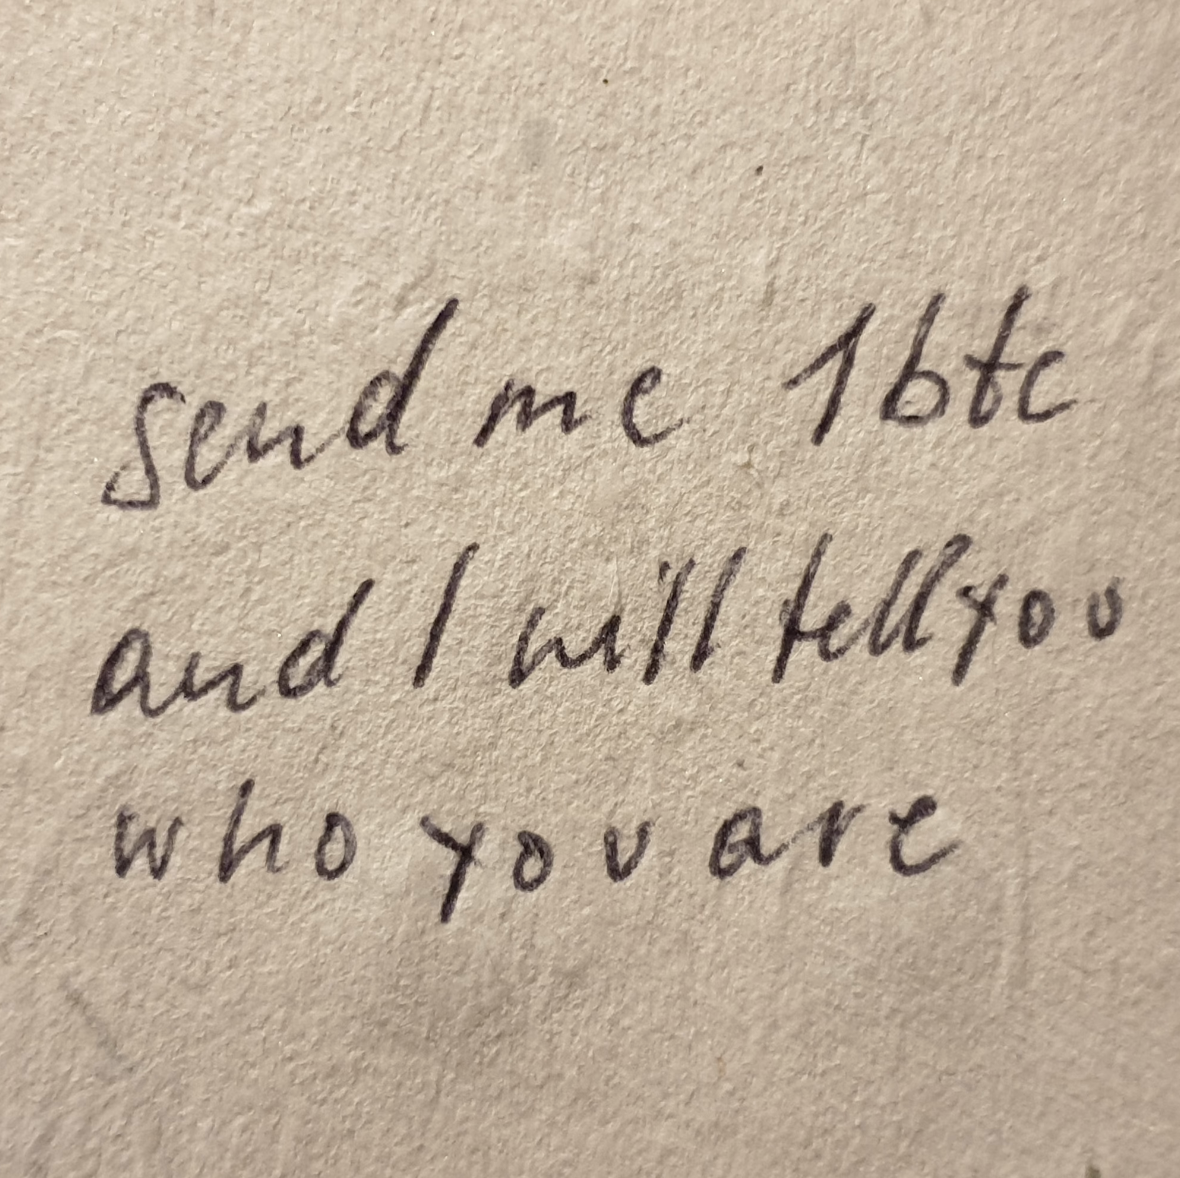 send me 1btc
and I will tell you
who you are